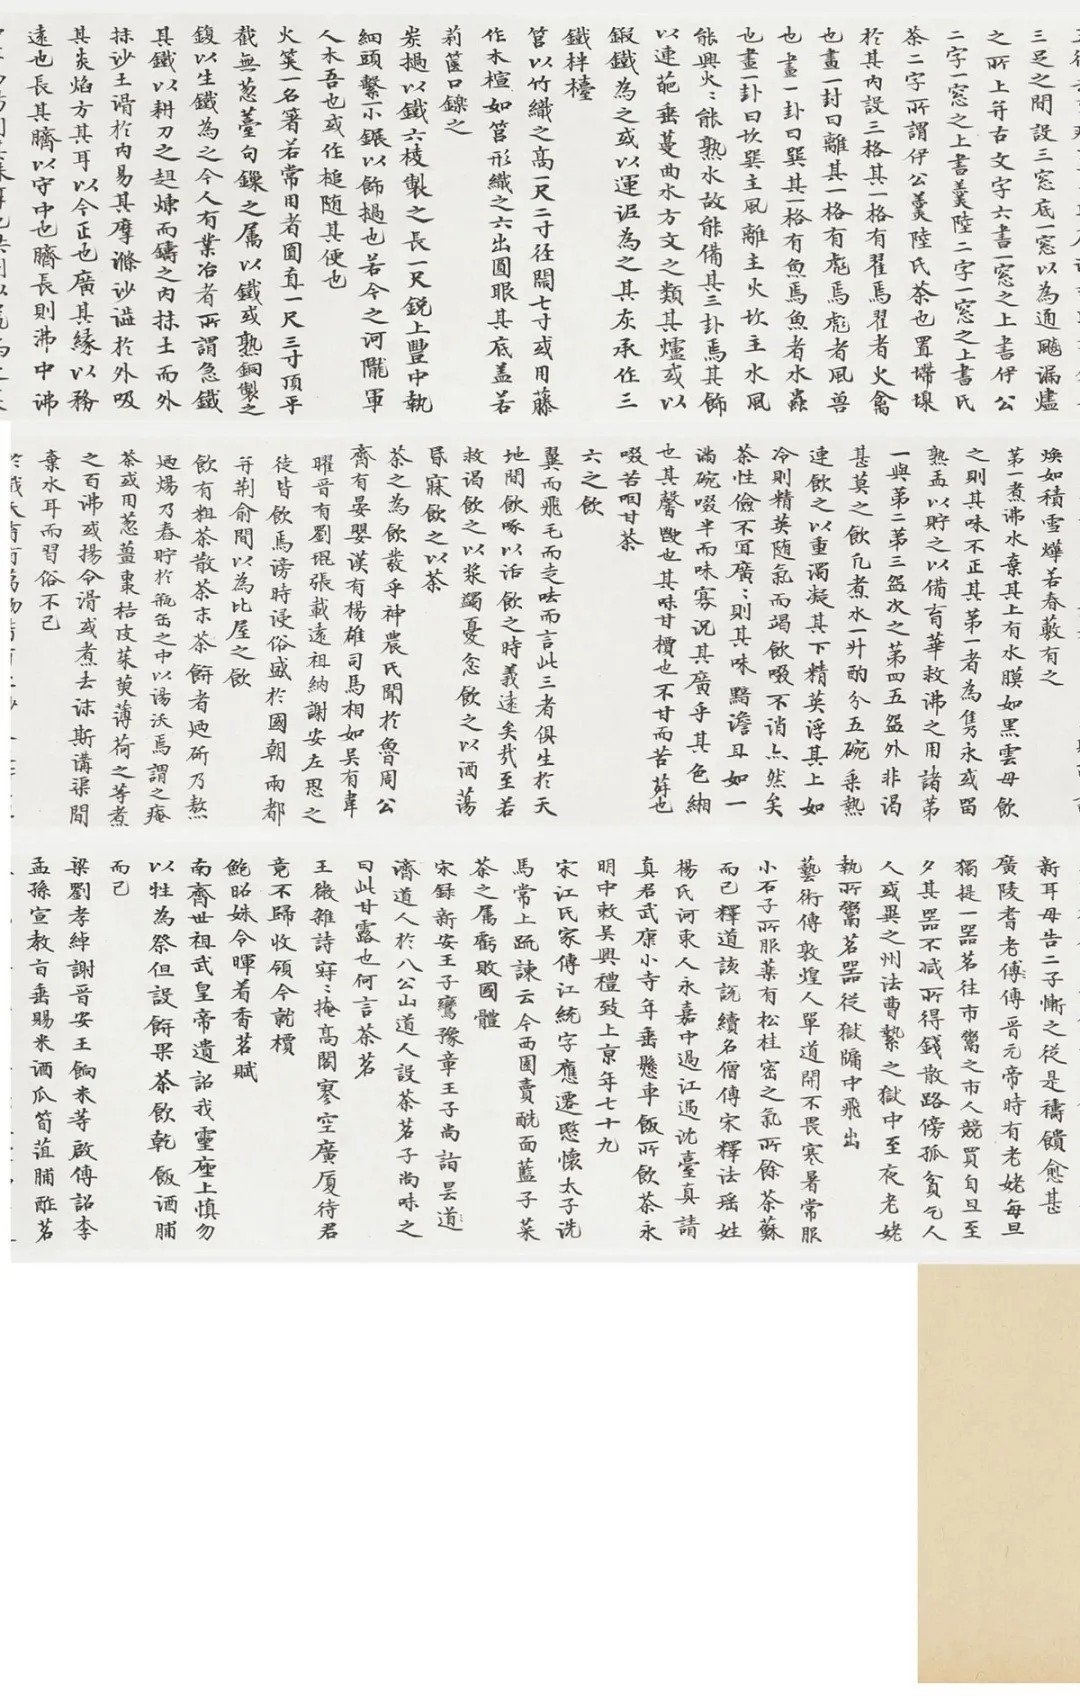 三足之間設三窓底一窓以為通飈漏燼
之所上并古文字六書一窓之上書伊公
二字一窓之上書羹陸二字一窓之上書氏
茶二字所謂伊公羹陸氏茶也置墆㙞
於其内設三格其一格有翟焉翟者火禽
也畫一封曰離其一格有彪焉彪者風兽
也畫一卦曰巽其一格有魚焉魚者水蟲
也畫一卦曰坎巽主風離主火坎主水風
能興火〻能熟水故能備其三卦焉其飾
以連葩垂蔓曲水方文之類其爐或以
鍜鐵為之或以運泥為之其灰承作三
鐵柈檯
筥以竹織之高一尺二寸径闊七寸或用藤
作木楦如筥形織之六出圓眼其底盖若
莉篋口鑠之
炭撾以鐵六棱製之長一尺鋭上豐中執
細頭繫一小䥖以飾撾也若今之河隴軍
人木吾也或作槌随其便也
火筴一名箸若常用者圓直一尺三寸頂平
截無葱薹句鏁之属以鐵或熟銅製之
鍑以生鐵為之今人有業冶者所謂急鐵
其鐵以耕刀之趄煉而鑄之内抹土而外
抹沙土滑於内易其摩滌沙澁於外吸
其炎焰方其耳以令正也廣其縁以務
遠也長其臍以守中也臍長則沸中沸
焕如積雪燁若春藪有之
第一煮沸水棄其上有水膜如黒雲母飲
之則其味不正其第一者為隽永或畱
熟盂以貯之以備育華救沸之用諸苐
一與第二第三盌次之苐四五盌外非渴
甚莫之飲凢煮水一升酌分五碗乗熱
連飲之以重濁凝其下精英浮其上如
冷則精英随氣而竭飲啜不消亦然矣
茶性儉不冝廣〻則其味黯澹且如一
滿碗啜半而味寡况其廣乎其色緗
也其馨𣣓也其味甘檟也不甘而苦荈也
啜苦咽甘茶
六之飲
翼而飛毛而走呿而言此三者俱生於天
地間飲啄以活飲之時義遠矣㢤至若
救渴飲之以浆蠲憂忿飲之以酒蕩
昬寐飲之以茶
茶之為飲發乎神農氏聞於魯周公
齊有晏嬰漢有楊雄司馬相如吴有韋
曜晋有劉琨張載遠祖納謝安左思之
徒皆飲焉滂時浸俗盛於國朝兩都
并荆俞間以為比屋之飲
飲有粗茶散茶末茶餅者廼斫乃熬
廼煬乃舂貯於瓶缶之中以湯沃焉謂之痷
茶或用葱薑棗桔皮茱萸薄荷之等煮
之百沸或揚令滑或煮去沫斯溝渠間
棄水耳而習俗不已
新耳母告二子慚之從是禱饋愈甚
廣陵耆老傅傅晋元帝時有老姥每旦
獨提一器茗往市鬻之市人競買自旦至
夕其器不减所得錢散路傍孤貧乞人
人或異之州法曹縶之獄中至夜老姥
執所鬻茗器従獄牖中飛出
藝術傳敦煌人單道開不畏寒暑常服
小石子所服藥有松桂宻之氣所餘茶蘇
而已釋道該説續名僧傳宋釋法瑶姓
楊氏河東人永嘉中過江遇沈臺真請
真君武康小寺年垂懸車飯所飲茶永
明中敕吴興禮致上京年七十九
宋江氏家傳江統字應遷愍懐太子洗
馬常上䟽諫云今西園賣醯面藍子菜
茶之属虧敗國體
宋録新安王子鸞豫章王子尚詣曇道
濟道人於八公山道人設茶茗子尚味之
曰此甘露也何言茶茗
王微雜詩寂〻掩高閣寥空廣厦待君
竟不歸收領今就檟
鮑昭姝令暉着香茗賦
南齊世祖武皇帝遺詔我靈座上慎勿
以牲為祭但設餅果茶飲乾飯酒脯
而已
梁劉孝綽謝晋安王餉米等啟傅詔李
孟孫宣教㫖垂賜米酒瓜筍菹脯酢茗